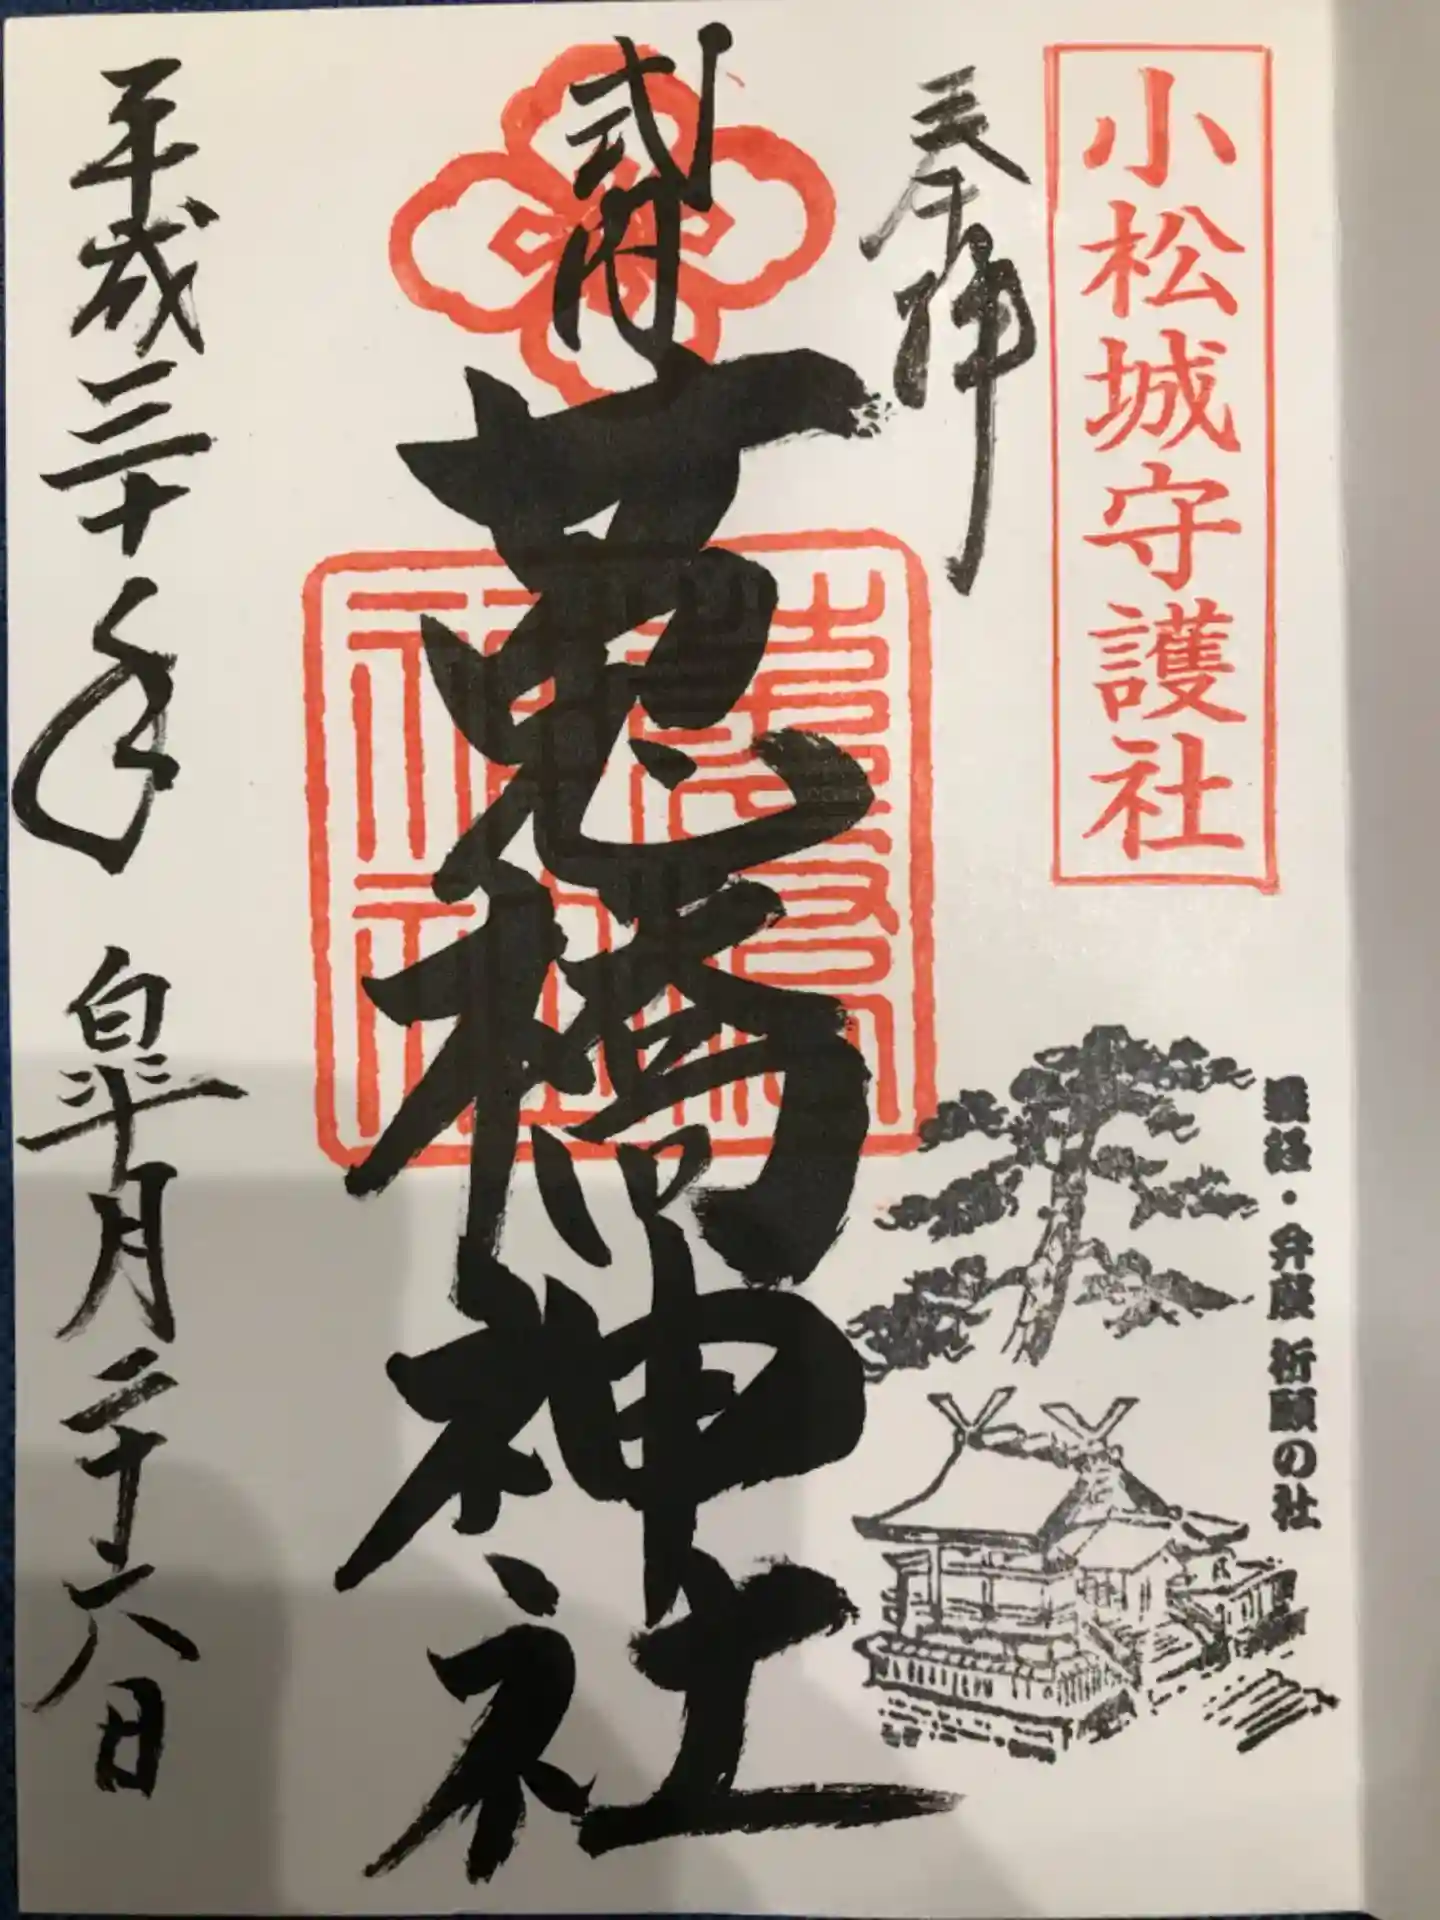 小松城守護社
奉拝
義経・弁慶 祈願の社
式内
莵橋神社
平成三十年 皐月二十六日